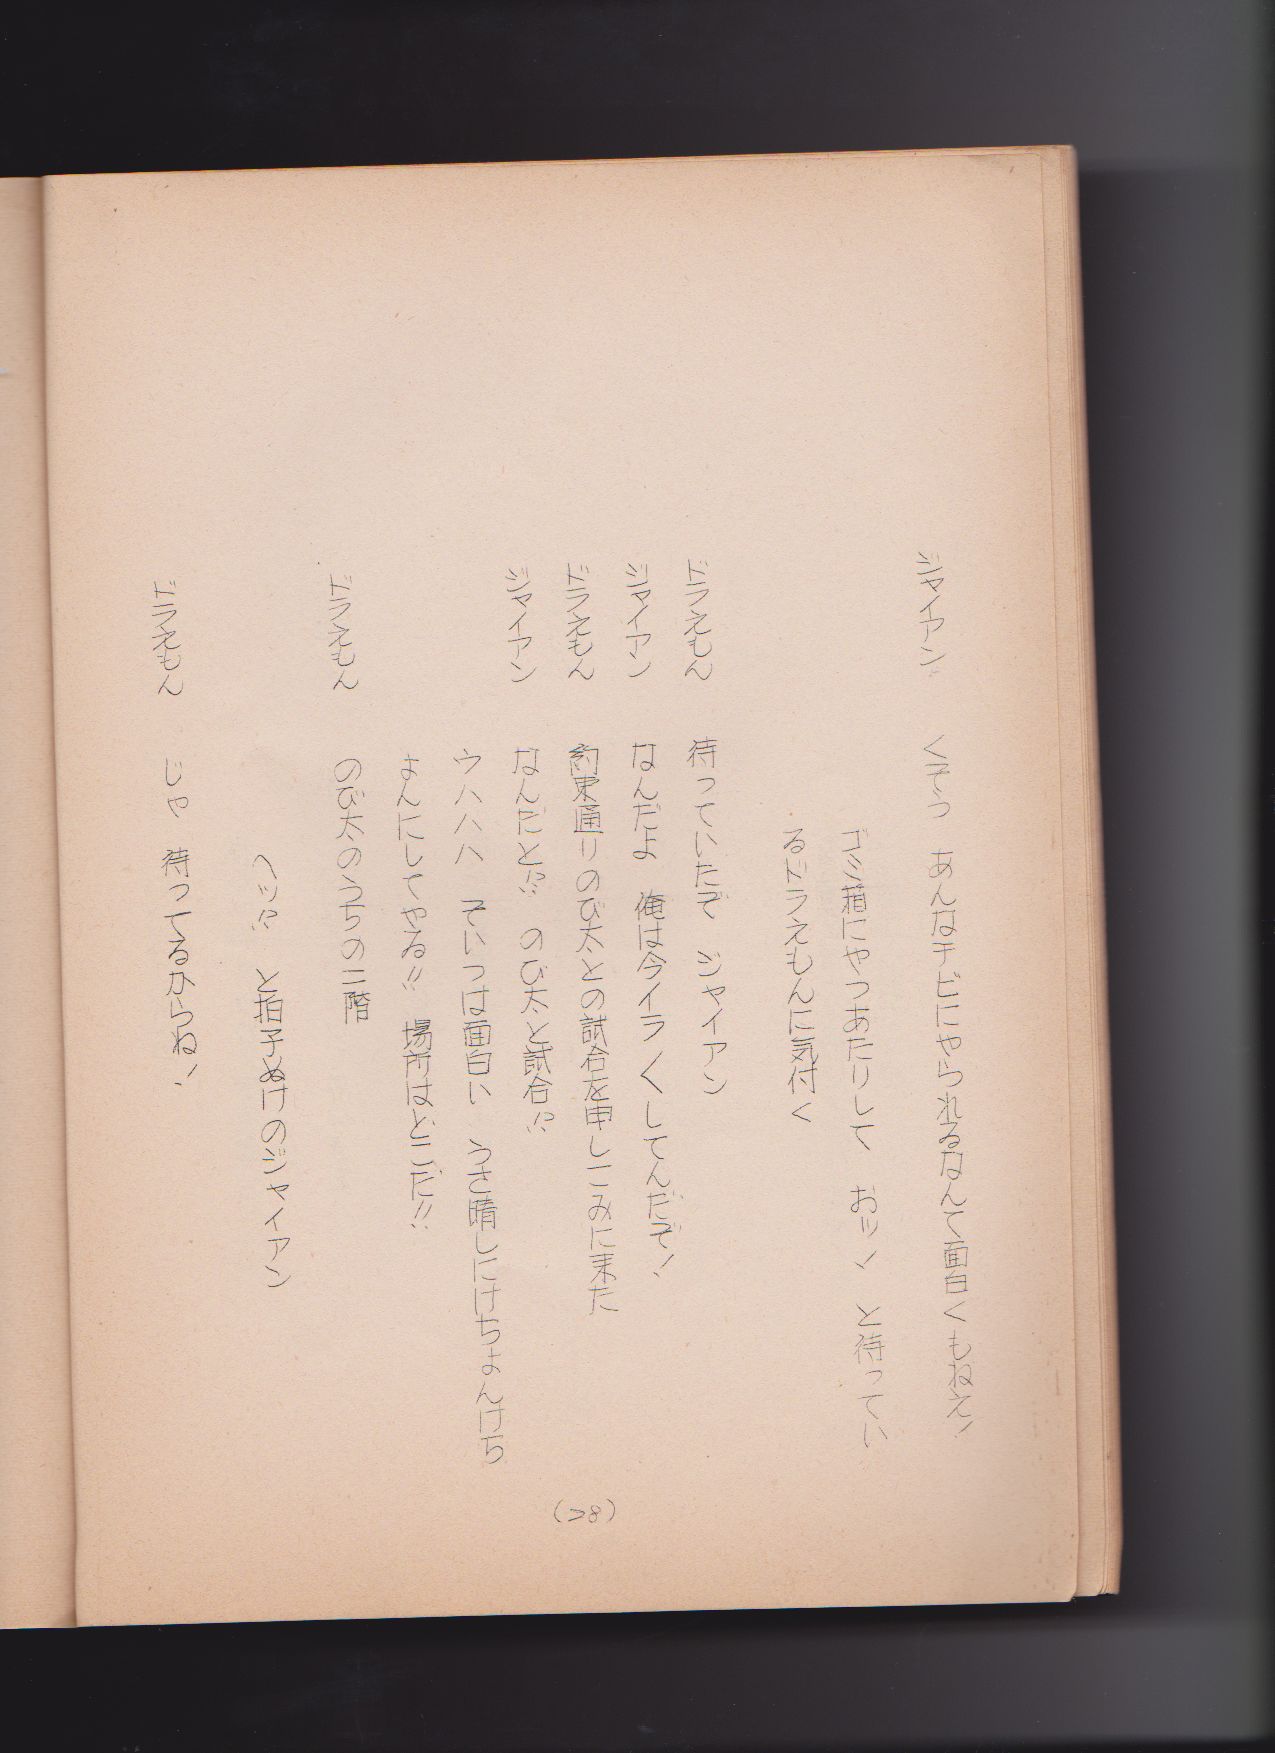 ジャイアン　くそう　あんなチビにやられるなんて面白くもねえ！
ゴミ箱にやつあたりして　おッ！　と待ってい
るドラえもんに気付く
ドラえもん　待っていたぞ　ジャイアン
ジャイアン　なんだよ　俺は今イライラしてんだぞ！
ドラえもん　約束通りのび太との試合を申しこみに来た
ジャイアン　なんだと!?　のび太と試合!?
ウハハハ　そいつは面白い　うさ晴しにけちょんけち
ょんにしてやる!!　場所はどこだ!!
ドラえもん　のび太のうちの二階
ヘッ!?　と拍子ぬけのジャイアン
ドラえもん　じゃ　待ってるからね！
(28)